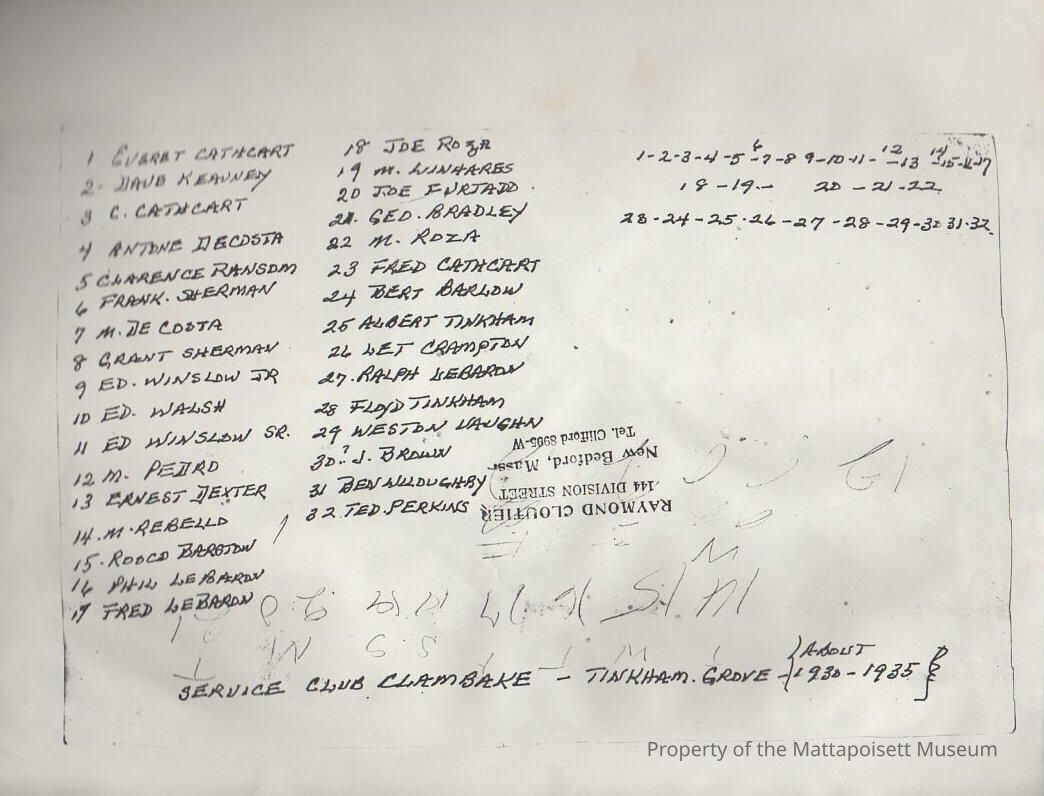 1 EVERET CATHCART
2 DAVE KEAUNEY
3 C. CATHCART
4 ANTONE DECOSTA
5 CLARENCE RANSOM
6 FRANK. SHERMAN
7 M. DE COSTA
8 GRANT SHERMAN
9 ED. WINSLOW JR
10 ED. WALSH
11 ED WINSLOW SR.
12 M. PEDRO
13 ERNEST DEXTER
14. M. REBELLO
15. ROSCO BARSTOW
16 PHIL LEBARON
17 FRED LEBARON
18 JOE ROZA
19 M. LINHARES
20 JOE FURTADO
21. GEO. BRADLEY
22 M. ROZA
23 FRED CATHCART
24 BERT BARLOW
25 ALBERT TINKHAM
26 LET CRAMPTON
27. RALPH LEBARON
28 FLOYD TINKHAM
29 WESTON VAUGHN
30.? J. BROWN
31 BEN WILLOUGHBY
32 TED. PERKINS
1-2-3-4-5-6-7-8 9-10-11-12-13 14-15-16-17
18-19- 20-21-22
23-24-25-26-27-28-29-30 31-32
RAYMOND CLOUTIER
144 DIVISION STREET
New Bedford, Mass.
Tel. Clifford 8995-W
SERVICE CLUB CLAMBAKE - TINKHAM. GROVE - {ABOUT 1930-1935}
Property of the Mattapoisett Museum